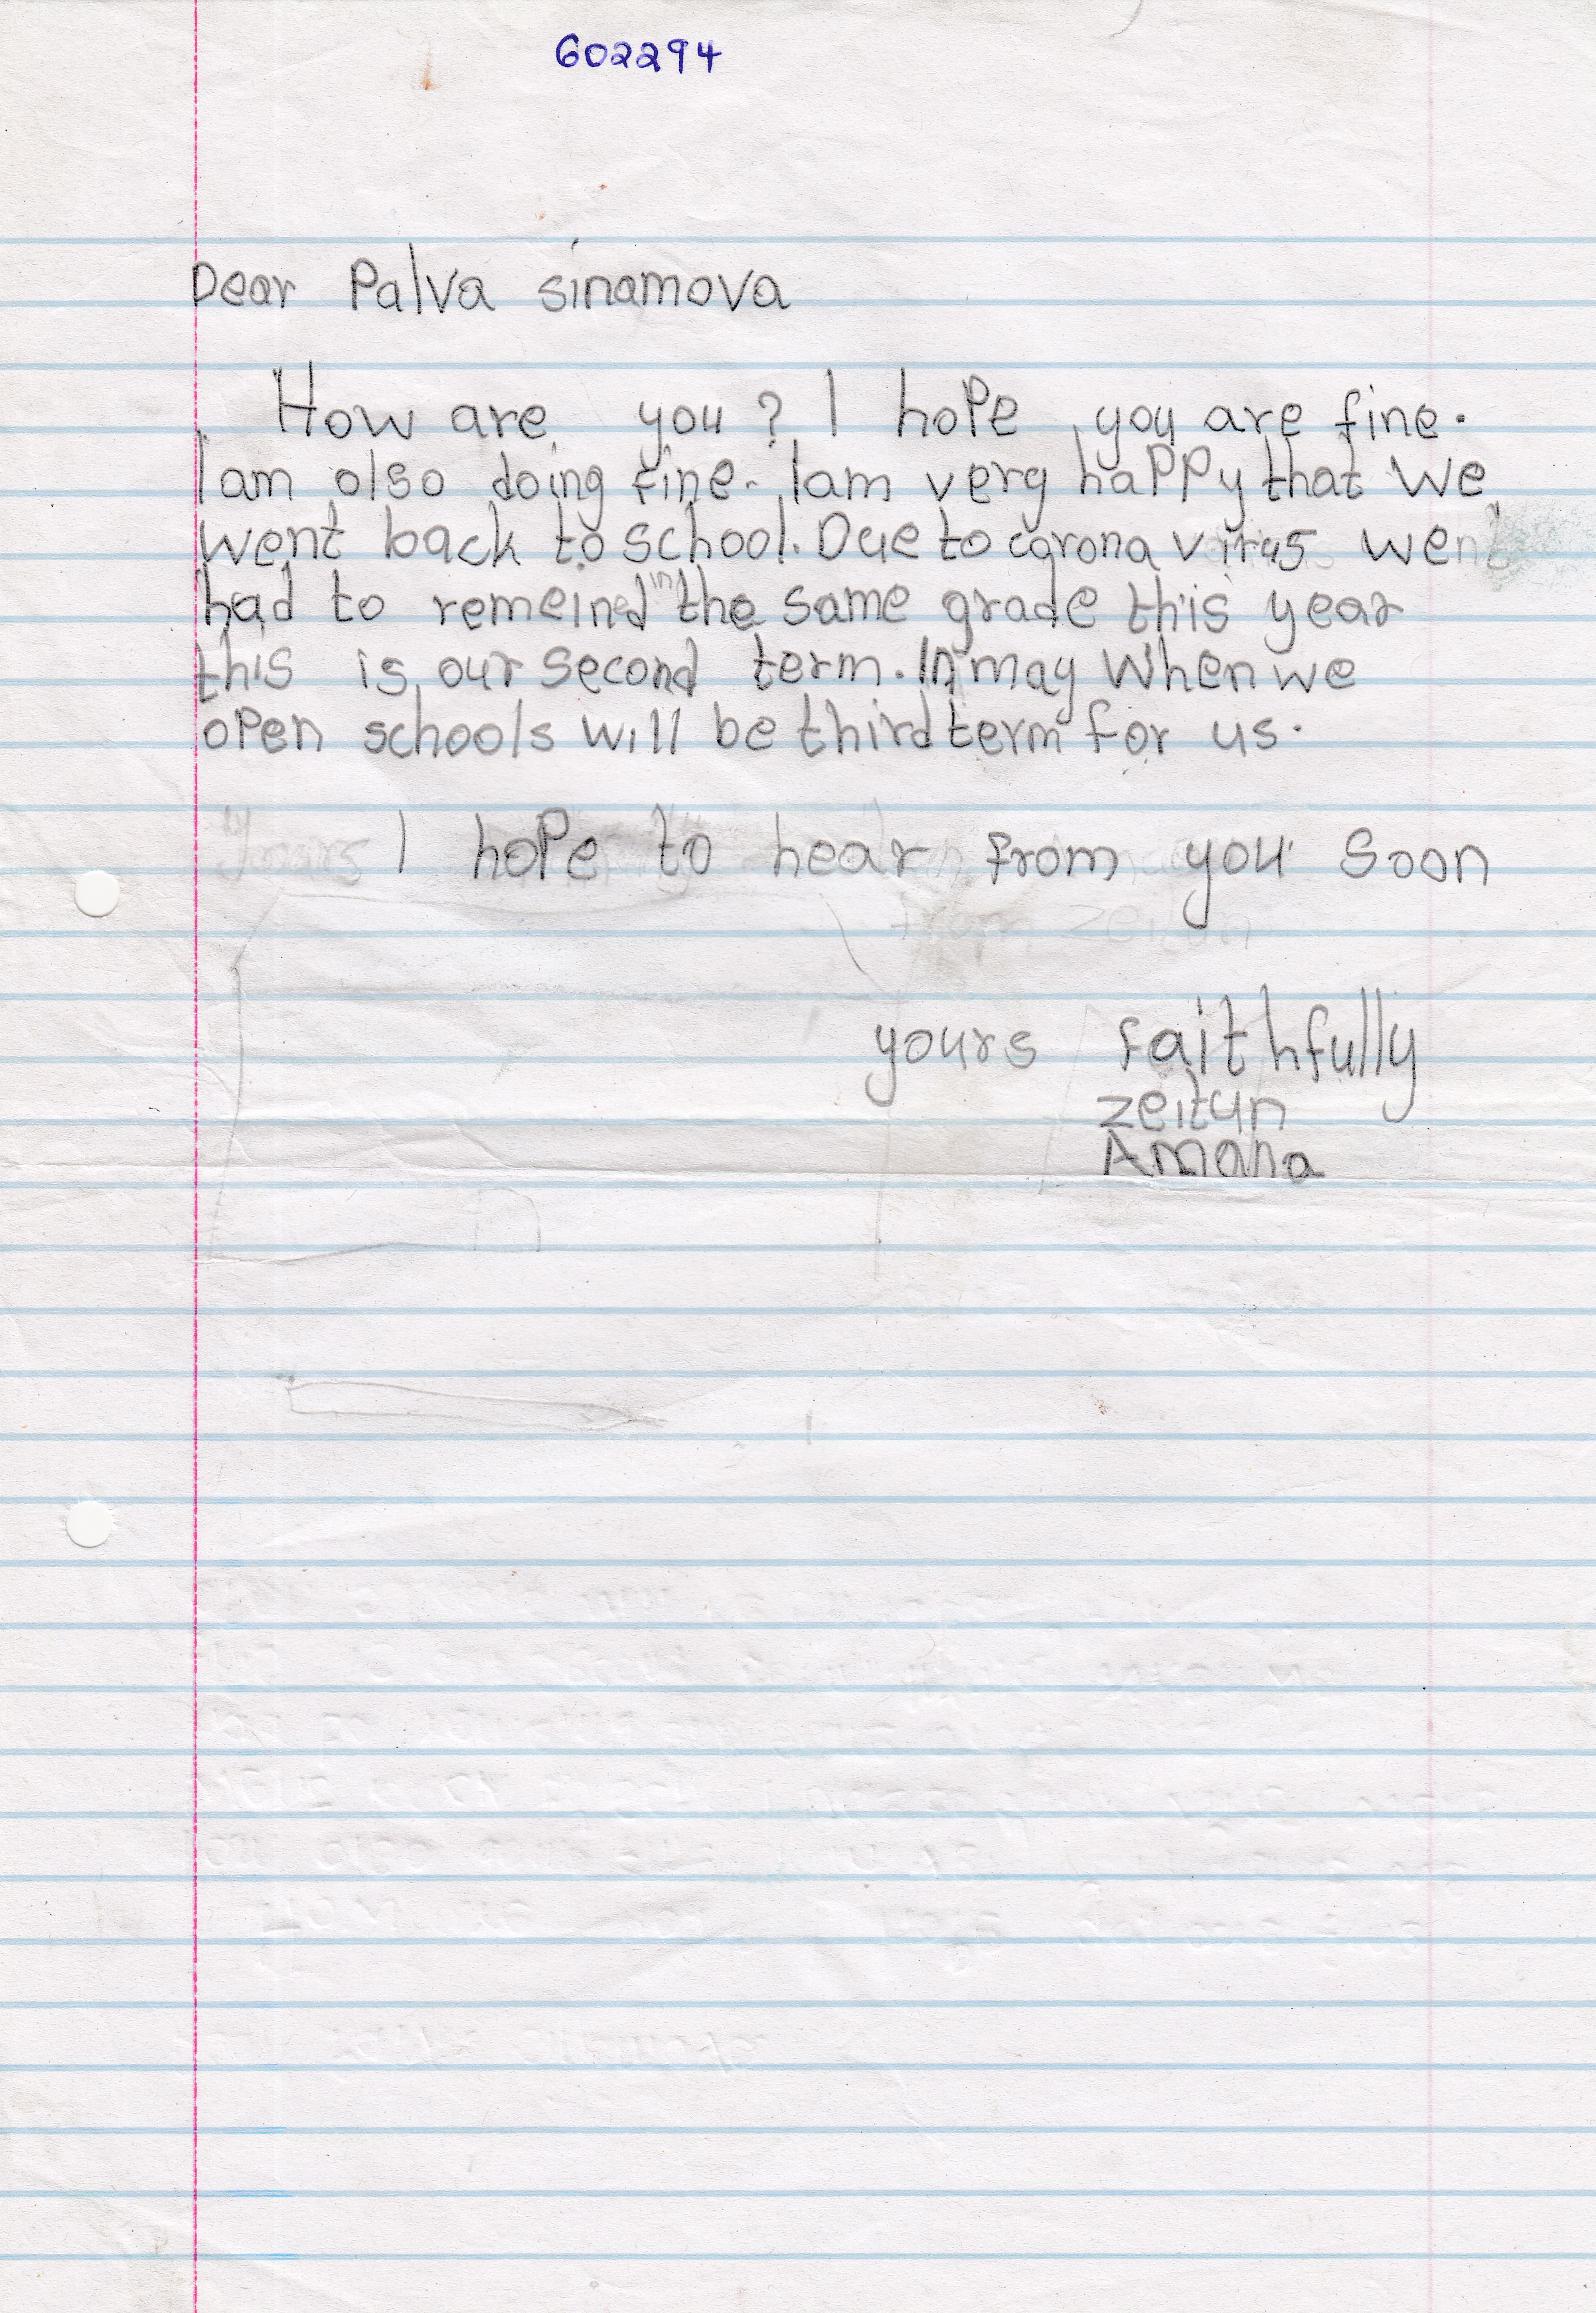 602294
Dear Palva sinamova
How are you? I hope you are fine.
I am olso doing fine. Iam very happy that we
went back to school. Due to corona virus went
had to remeined in the same grade this year
this is our second term. In may when we
open schools will be third term for us.
I hope to hear from you soon
yours faithfully
zeitun
Amana